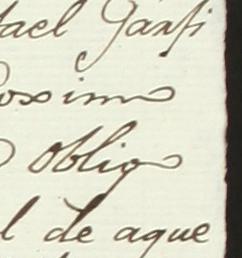 ael Garfi
oximo
obligo
l de aque